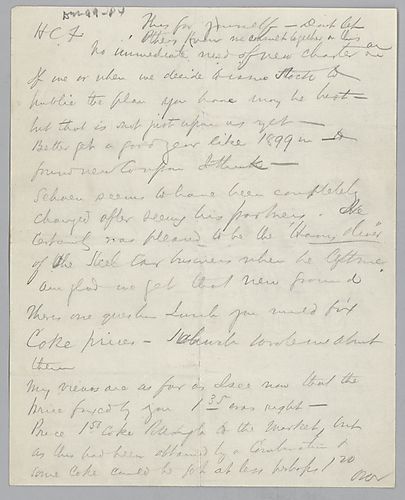 HCF
This for yourself — Don't let
others know we consult together on this
No immediate need of new charter
If we or when we decide to issue Stock to
public the plan you have may be best —
but that is not just upon us yet —
Better get a good year like 1899 in — to
found new Company I think —
Schoen seems to have been completely
changed after seeing his partners. He
Certainly was pleased to be the "Harvey Oliver"
of the Steel Car business when he left me
am glad we get that new ground
There's one question I wish you would fix
Coke prices — wrote me about
them
My views are as far as I see now that the
price fixed by you 1 35 was right —
Price 1st Coke the market, but
as this had been obtained by a Combination &
some coke could be got at less perhaps 1 20
over